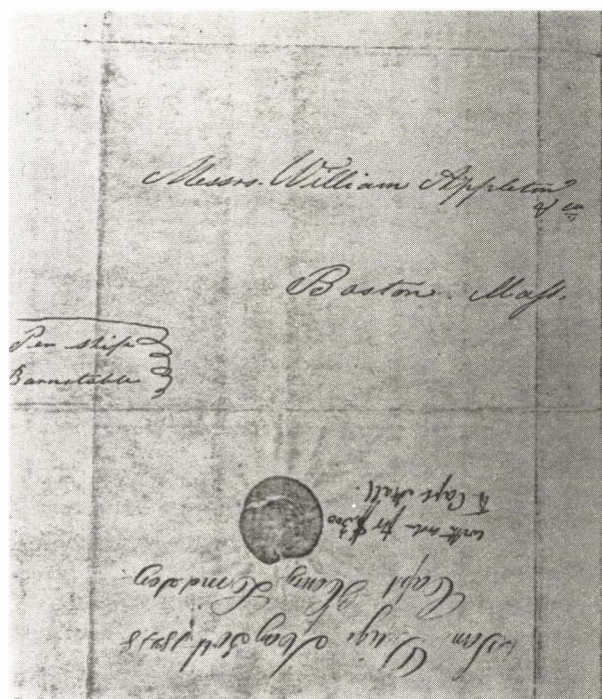 Messrs. William Appleton
& Co
Boston. Mass.
Per ship
Barnstable
San Diego May 30th 1848
Capt Henry
for $300
To Capt Hall.